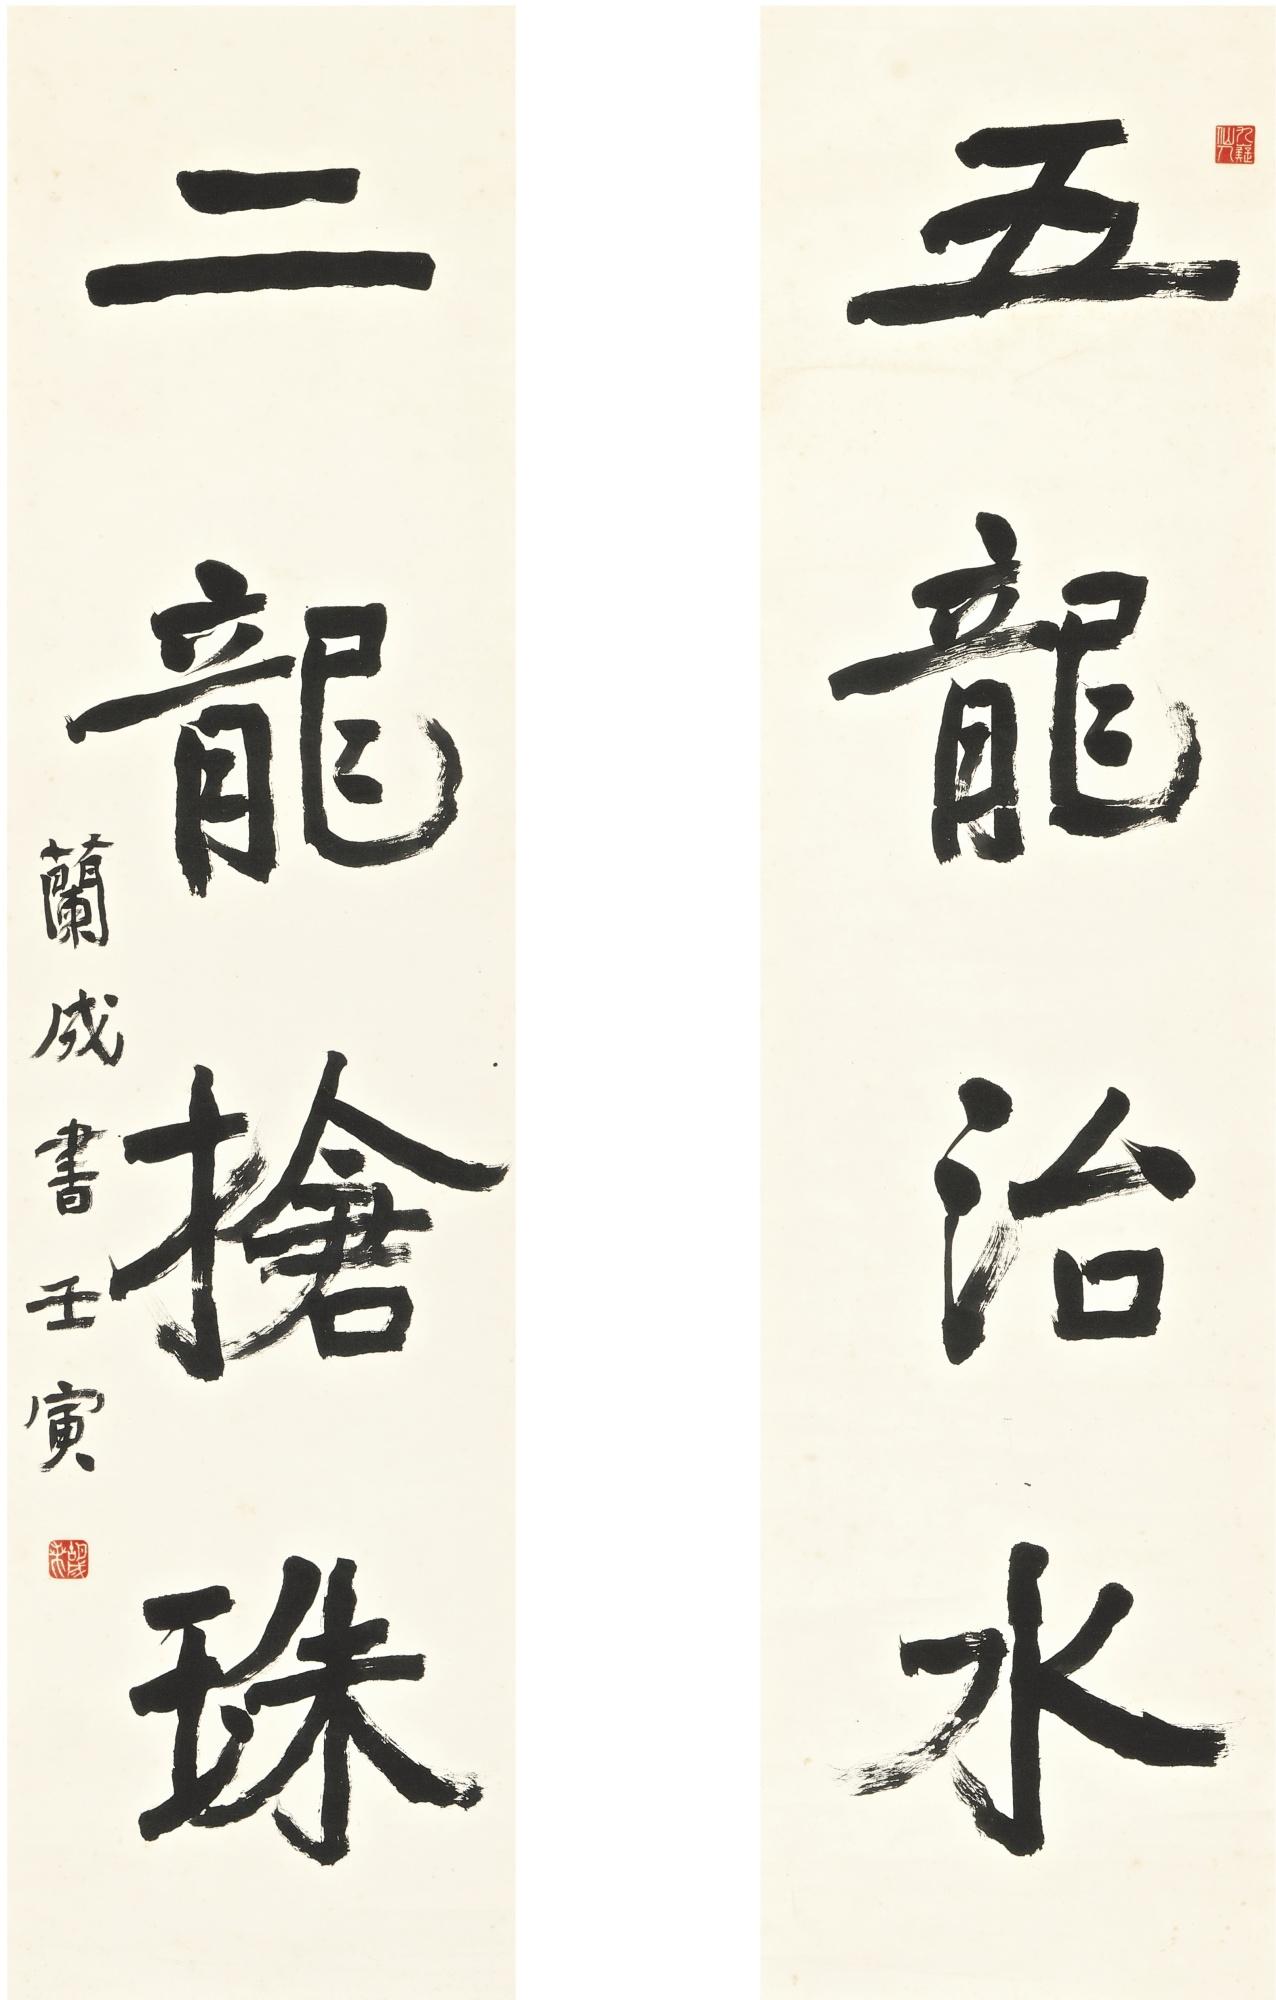 五龍治水
二龍搶珠
蘭成書壬寅